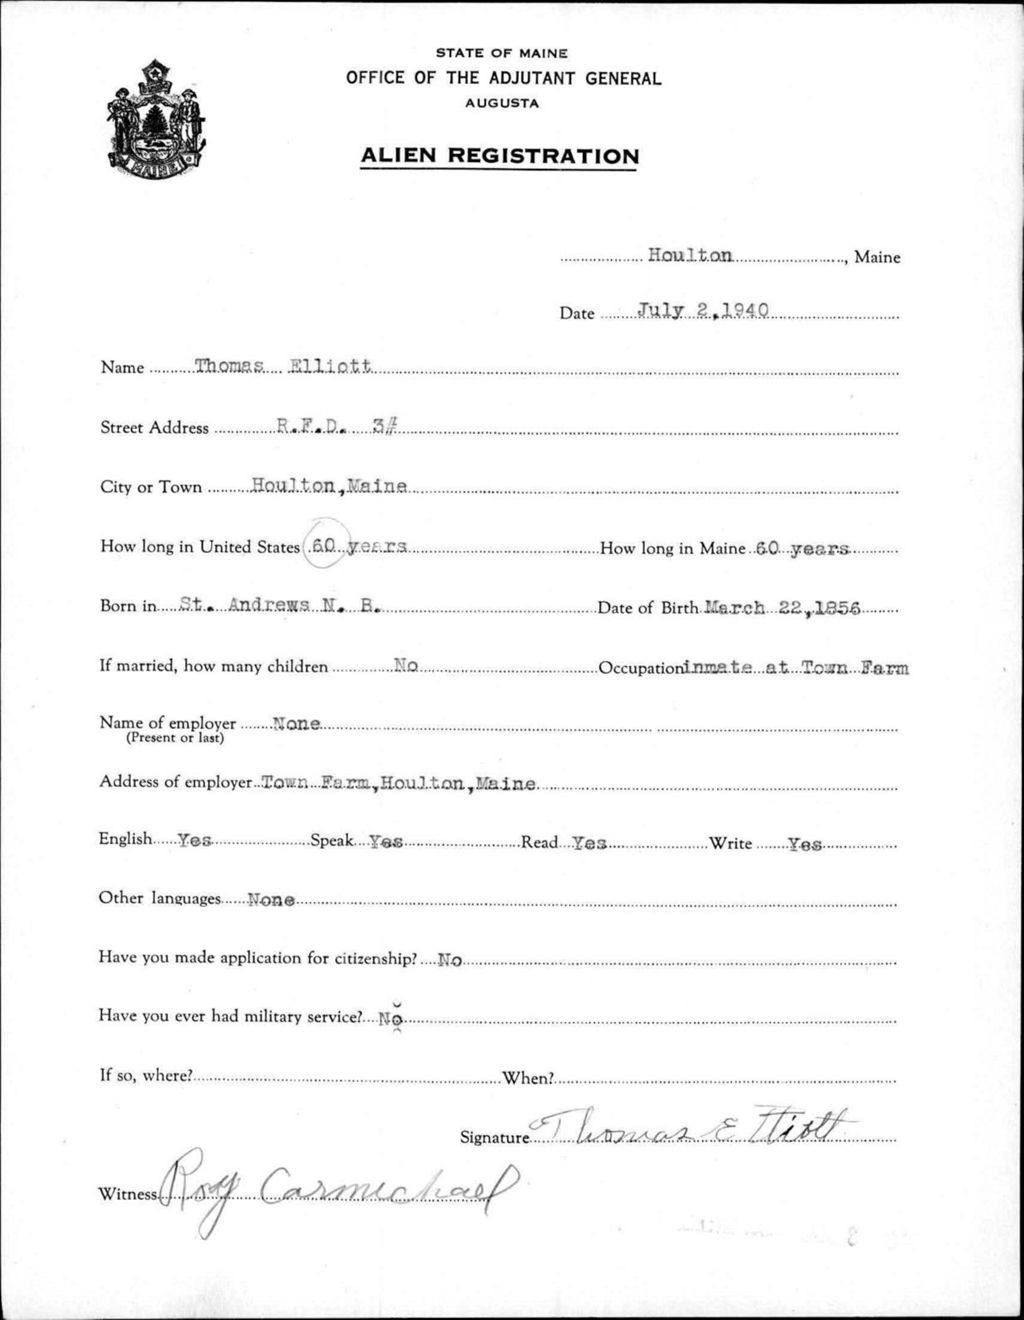 STATE OF MAINE
OFFICE OF THE ADJUTANT GENERAL
AUGUSTA
ALIEN REGISTRATION
MAINE
Houlton, Maine
Date July 2,1940
Name Thomas Elliott
Street Address R.F.D. 3#
City or Town Houlton,Maine
How long in United States 60 years How long in Maine 60 years
Born in St. Andrews N. B. Date of Birth March 22,1856
If married, how many children No Occupation inmate at Town Farm
Name of employer None
(Present or last)
Address of employer Town Farm,Houlton,Maine
English Yes Speak Yes Read Yes Write Yes
Other languages None
Have you made application for citizenship? No
Have you ever had military service? No
If so, where? When?
Signature Thomas Elliott
Witness Roy Carmichael